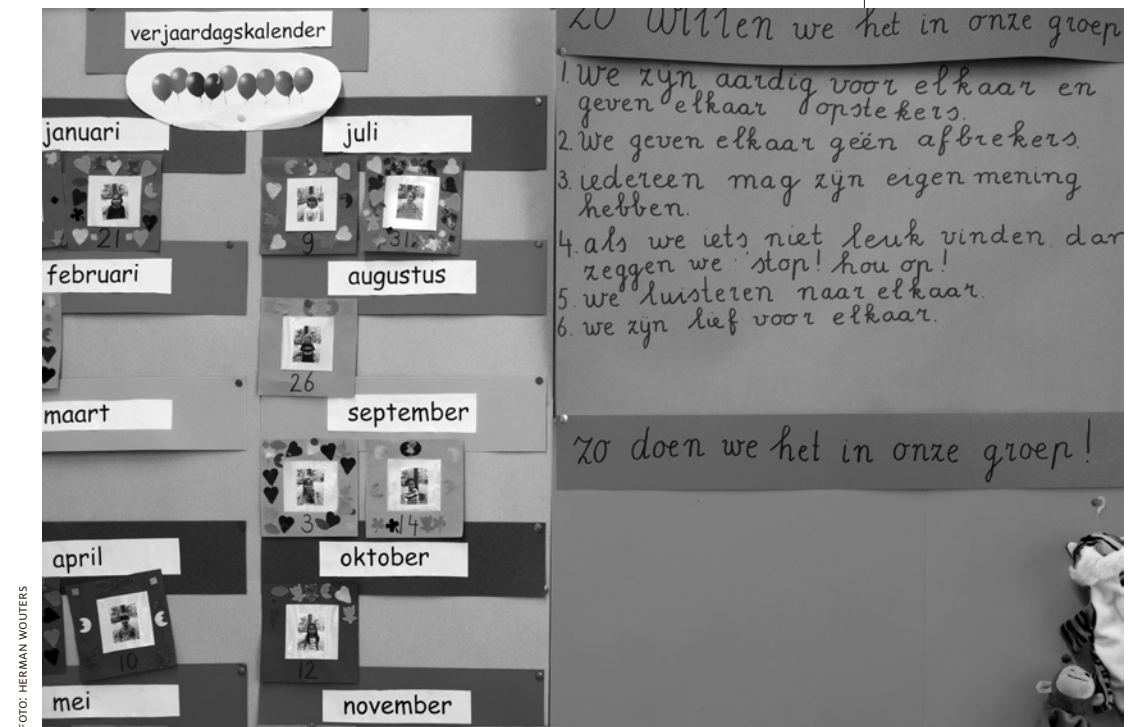 verjaardagskalender
januari
21
februari
maart
april
10
mei
juli
9
31
augustus
26
september
3
14
oktober
12
november
zo willen we het in onze groep
1. we zijn aardig voor elkaar en
geven elkaar opstekers.
2. we geven elkaar géén afbrekers.
3. iedereen mag zijn eigen mening
hebben.
4. als we iets niet leuk vinden dan
zeggen we stop! hou op!
5. we luisteren naar elkaar.
6. we zijn lief voor elkaar.
zo doen we het in onze groep!
FOTO: HERMAN WOUTERS